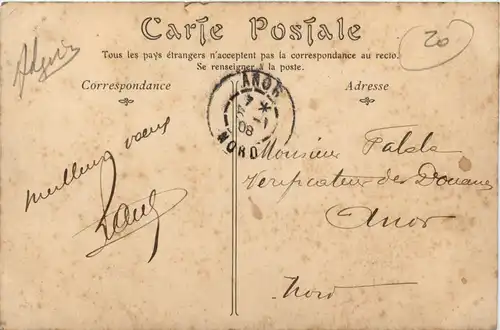 Carte Postale
Tous les pays étrangers n'acceptent pas la correspondance au recto.
Se renseigner à la poste.
Correspondance
Adresse
20
ANOR
7 *
08
NORD
meilleurs vœux
Monsieur
Vérificateur des Douanes
Anor
Nord